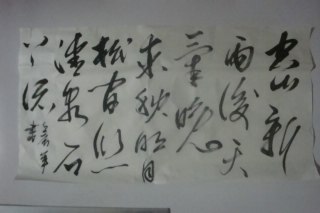 空山新
雨後天
氣晚
來秋明月
松間照
清泉石
上流
書